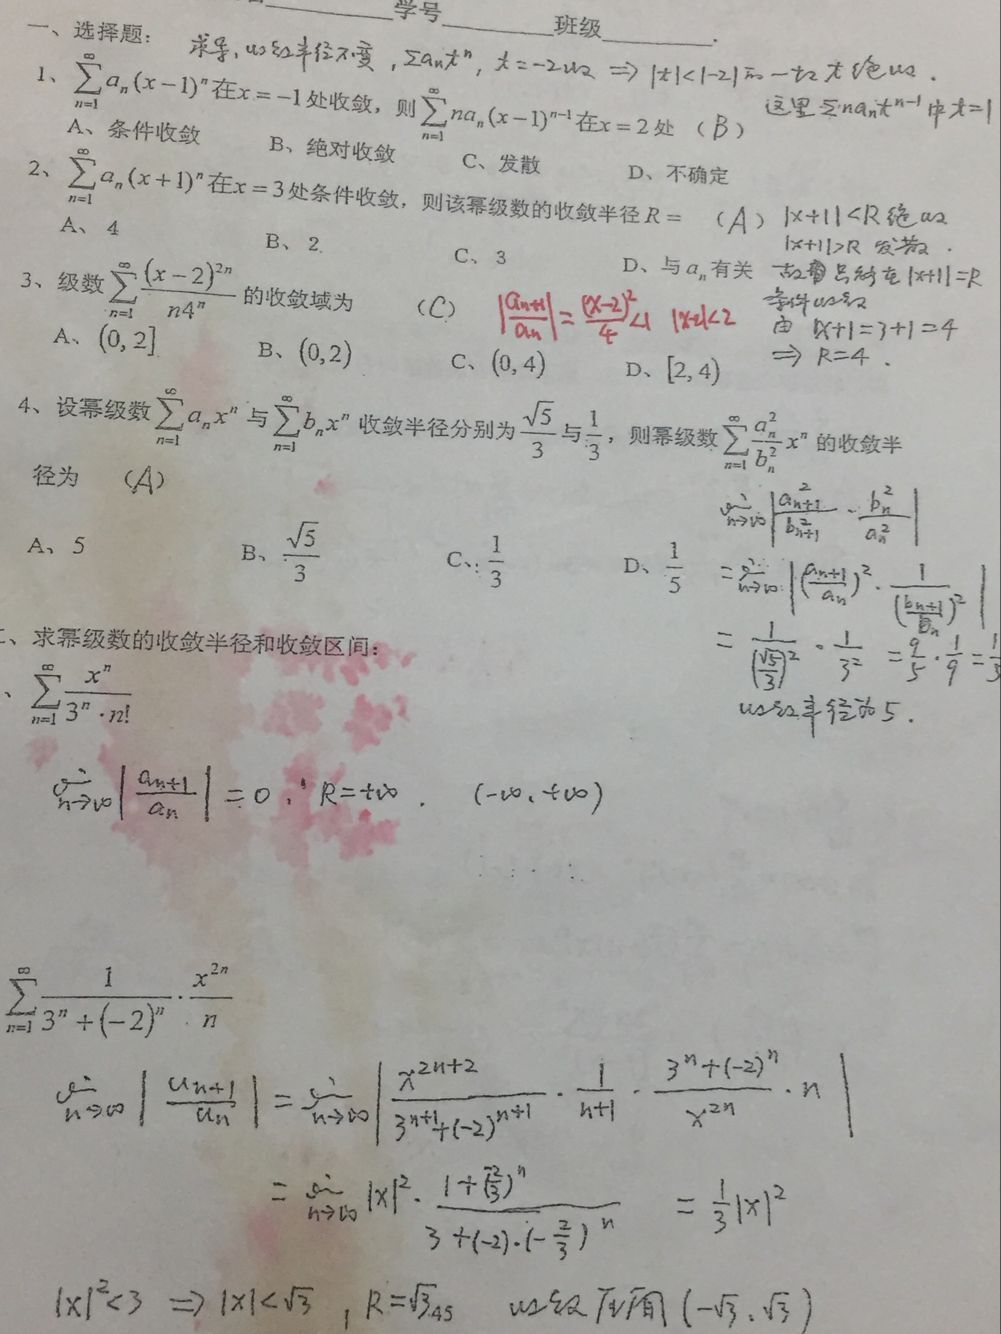 学号________班级________.
一、选择题： 求导，收敛半径不变，∑aₙtⁿ，t=-2收敛 ⇒ |t|<|-2|的一切t绝收.
1、∑_{n=1}^{∞} aₙ(x−1)ⁿ在x=−1处收敛，则∑_{n=1}^{∞} naₙ(x−1)ⁿ⁻¹在x=2处（B） 这里∑naₙtⁿ⁻¹中t=1
A、条件收敛 B、绝对收敛 C、发散 D、不确定
2、∑_{n=1}^{∞} aₙ(x+1)ⁿ在x=3处条件收敛，则该幂级数的收敛半径R=（A） |x+1|<R绝收
|x+1|>R 发散.
A、4 B、2 C、3 D、与aₙ有关
故只能在|x+1|=R
条件收敛
由|x+1=3+1=4
⇒ R=4.
3、级数∑_{n=1}^{∞} (x−2)²ⁿ/(n4ⁿ)的收敛域为（C） |aₙ₊₁/aₙ|=(x-2)²/4<1 |x-2|<2
A、(0,2] B、(0,2) C、(0,4) D、[2,4)
4、设幂级数∑_{n=1}^{∞} aₙxⁿ与∑_{n=1}^{∞} bₙxⁿ收敛半径分别为√5/3与1/3，则幂级数∑_{n=1}^{∞} (aₙ²/bₙ²)xⁿ的收敛半
径为（A）
lim_{n→∞} |aₙ₊₁²/bₙ₊₁² · bₙ²/aₙ²|
A、5 B、√5/3 C、1/3 D、1/5
=lim_{n→∞} |(aₙ₊₁/aₙ)² · 1/(bₙ₊₁/bₙ)²|
= 1/(√5/3)² · 1/3² = 9/5 · 1/9 = 1/5
收敛半径为5.
、求幂级数的收敛半径和收敛区间：
、∑_{n=1}^{∞} xⁿ/(3ⁿ·n!)
lim_{n→∞} |aₙ₊₁/aₙ| = 0. R=+∞. (-∞,+∞)
∑_{n=1}^{∞} 1/(3ⁿ+(−2)ⁿ) · x²ⁿ/n
lim_{n→∞} |uₙ₊₁/uₙ| = lim_{n→∞} |x²ⁿ⁺²/(3ⁿ⁺¹+(-2)ⁿ⁺¹) · 1/(n+1) · (3ⁿ+(-2)ⁿ)/x²ⁿ · n|
= lim_{n→∞} |x|² · (1+(-2/3)ⁿ)/(3+(-2)·(-2/3)ⁿ) = 1/3|x|²
|x|²<3 ⇒ |x|<√3, R=√3 45 收敛区间(-√3,√3)